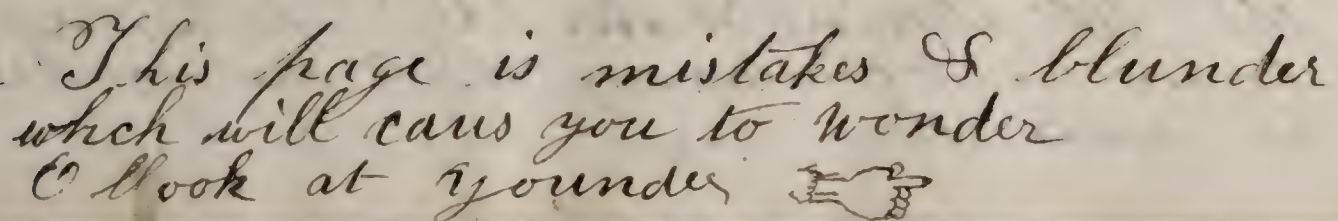 This page is mistakes & blunder
whch will caus you to wonder
O llook at younder ☞